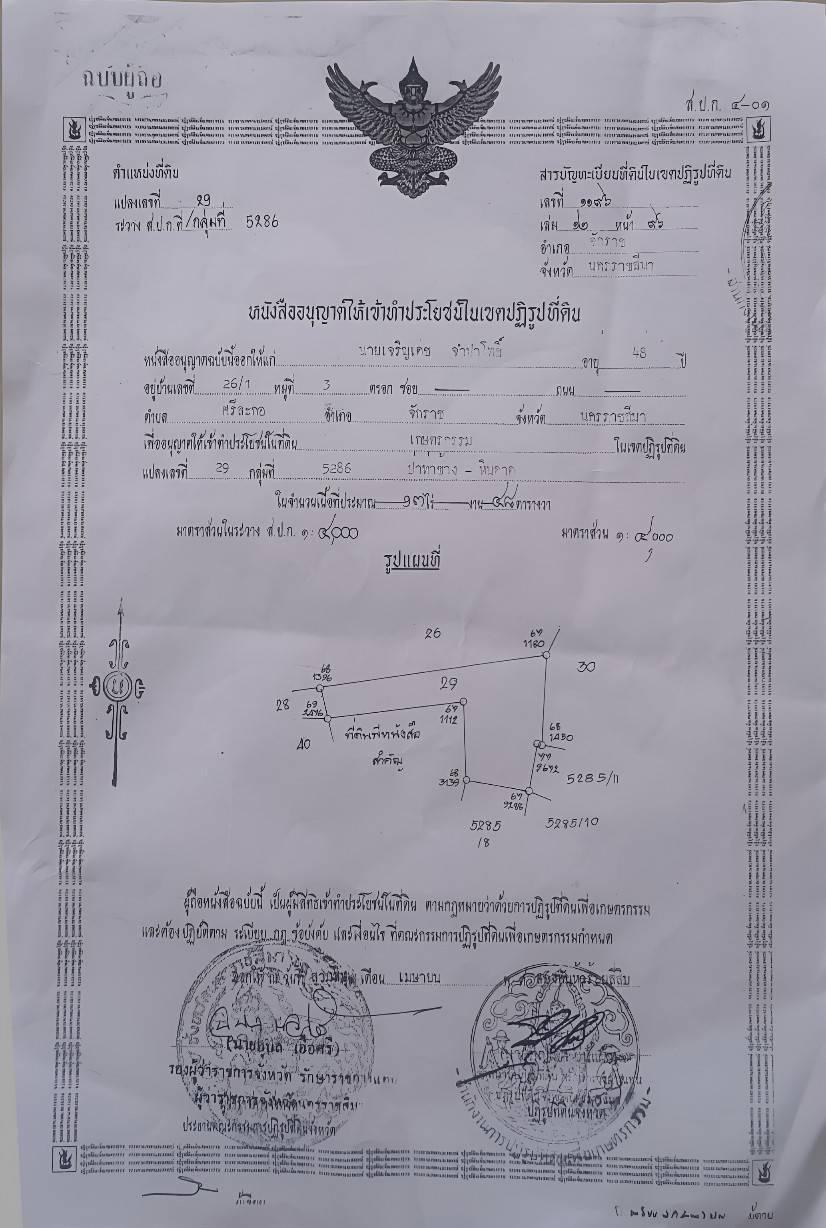 ฉบับผู้ถือ
ส.ป.ก. ๔-๐๑
ตำแหน่งที่ดิน
แปลงเลขที่ 29
ระวาง ส.ป.ก.ที่/กลุ่มที่ 5286
สารบัญทะเบียนที่ดินในเขตปฏิรูปที่ดิน
เลขที่ ๑๑๙๖
เล่ม ๑๒ หน้า ๙๖
อำเภอ จักราช
จังหวัด นครราชสีมา
หนังสืออนุญาตให้เข้าทำประโยชน์ในเขตปฏิรูปที่ดิน
หนังสืออนุญาตฉบับนี้ออกให้แก่ นายเจริญเดช จำปาโพธิ์ อายุ 48 ปี
อยู่บ้านเลขที่ 26/1 หมู่ที่ 3 ตรอก ซอย — ถนน —
ตำบล ศรีละกอ อำเภอ จักราช จังหวัด นครราชสีมา
เพื่ออนุญาตให้เข้าทำประโยชน์ในที่ดิน เกษตรกรรม ในเขตปฏิรูปที่ดิน
แปลงเลขที่ 29 กลุ่มที่ 5286 ป่าท่าช้าง - หินดาด
ในจำนวนเนื้อที่ประมาณ ๑๗ ไร่ — งาน ๔๘ ตารางวา
มาตราส่วนในระวาง ส.ป.ก. ๑: ๔,๐๐๐
มาตราส่วน ๑: ๔,๐๐๐
รูปแผนที่
26
67
1180
30
68
1396
29
28
69
67
1112
น
40
ที่ดินมีหนังสือ
สำคัญ
68
1430
5285/11
68
3139
67
5285/10
5285
/8
ผู้ถือหนังสือฉบับนี้ เป็นผู้มีสิทธิเข้าทำประโยชน์ในที่ดิน ตามกฎหมายว่าด้วยการปฏิรูปที่ดินเพื่อเกษตรกรรม
และต้องปฏิบัติตาม ระเบียบ กฎ ข้อบังคับ และเงื่อนไข ที่คณะกรรมการปฏิรูปที่ดินเพื่อเกษตรกรรมกำหนด
ออกให้ ณ วันที่ เดือน เมษายน
รองผู้ว่าราชการจังหวัด รักษาราชการแทน
ผู้ว่าราชการจังหวัดนครราชสีมา
ประธานคณะกรรมการปฏิรูปที่ดินจังหวัด
ปฏิรูปที่ดินจังหวัด